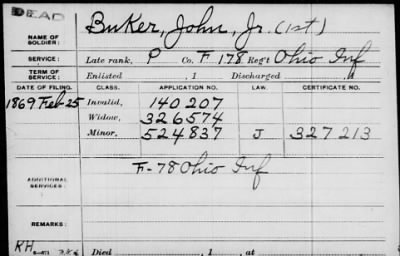 DEAD
NAME OF SOLDIER: Buker, John, Jr. (1st)
SERVICE: Late rank, P Co. F 178 Reg't Ohio Inf
TERM OF SERVICE: Enlisted , 1 Discharged , 1
DATE OF FILING. CLASS. APPLICATION NO. LAW. CERTIFICATE NO.
1869 Feb 25 Invalid, 140207
Widow, 326574
Minor, 524837 J 327213
ADDITIONAL SERVICES: F-78 Ohio Inf
REMARKS:
RH
Died , 1 , at